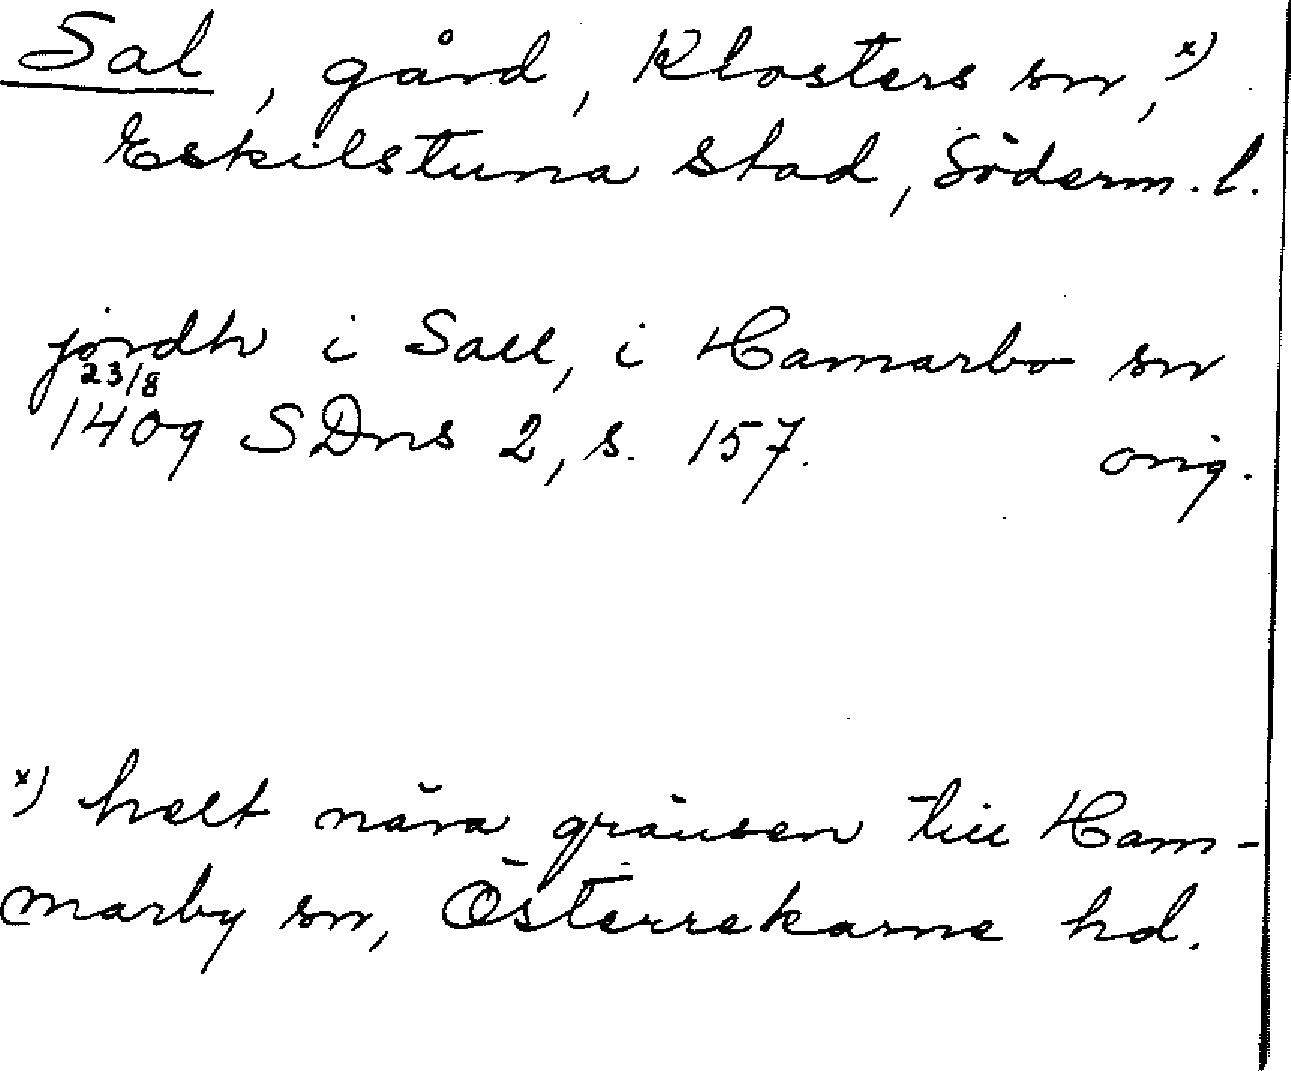 Sal, gård, Klosters sn, x)
Eskilstuna stad, Söderm. l.
jordh i Sall, i Hamarbo sn
23/8
1409 SDns 2, s. 157. orig.
x) helt nära gränsen till Ham-
marby sn, Österrekarne hd.